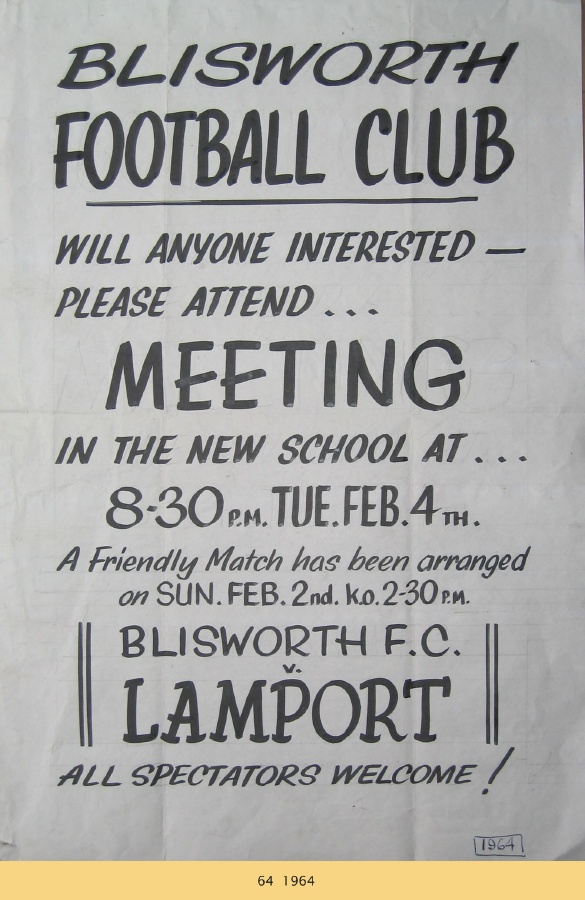 BLISWORTH
FOOTBALL CLUB
WILL ANYONE INTERESTED —
PLEASE ATTEND...
MEETING
IN THE NEW SCHOOL AT...
8-30 P.M. TUE. FEB. 4TH.
A Friendly Match has been arranged
on SUN. FEB. 2nd. k.o. 2-30 P.M.
BLISWORTH F.C.
v.
LAMPORT
ALL SPECTATORS WELCOME!
1964
64 1964